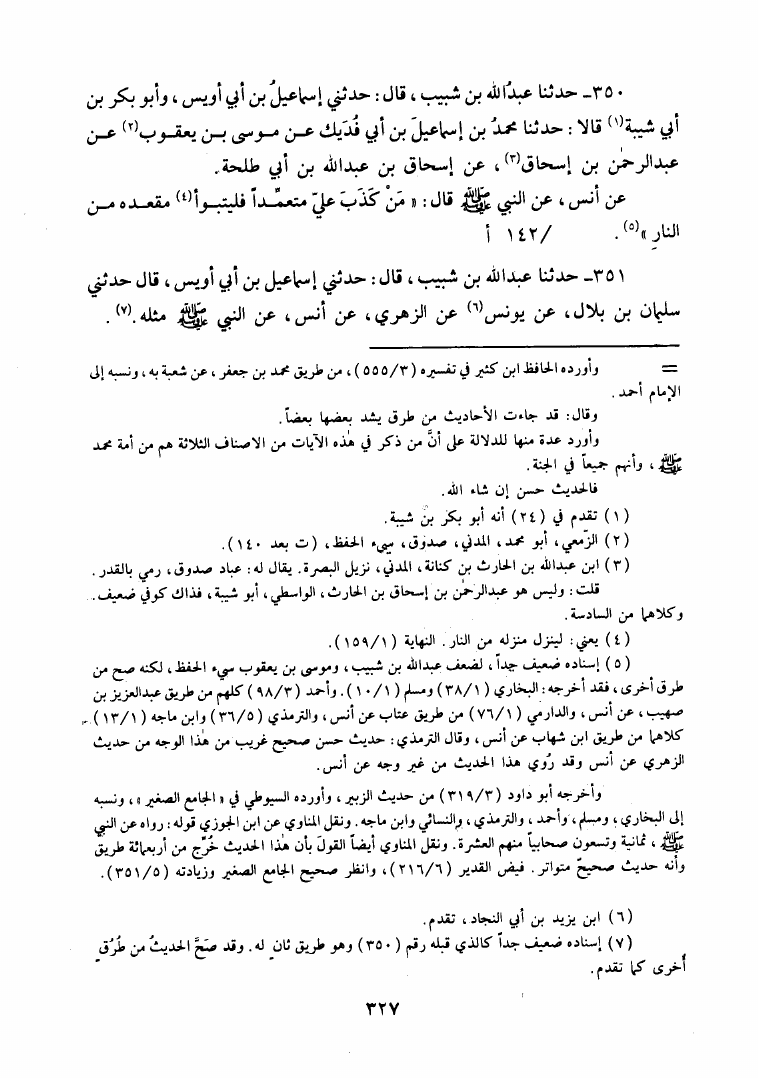 ٣٥٠ـ حدثنا عبدُالله بن شبيب ، قال : حدثني إسماعيلُ بن أبي أويس ، وأبو بكر بن
أبي شيبة(١) قالا : حدثنا محمدُ بن إسماعيلَ بن أبي فُدَيك عـن مـوسى بـن يعقـوب(٢) عـن
عبدالرحمٰن بن إسحاق(٣) ، عن إسحاق بن عبدالله بن أبي طلحة .
عن أنس ، عن النبي ﷺ قال : « مَنْ كَذَبَ عليّ متعمِّـداً فليتبـوأ(٤) مقعـده مـن
النارِ »(٥) . /١٤٢ أ
٣٥١ـ حدثنا عبدالله بن شبيب ، قال : حدثني إسماعيل بن أبي أويس ، قال حدثني
سليمان بن بلال ، عن يونس(٦) عن الزهري ، عن أنس ، عن النبي ﷺ مثله .(٧) .
= وأورده الحافظ ابن كثير في تفسيره (٥٥٥/٣) ، من طريق محمد بن جعفر ، عن شعبة به ، ونسبه إلى
الإمام أحمد .
وقال : قد جاءت الأحاديث من طرق يشد بعضها بعضاً .
وأورد عدة منها للدلالة على أنَّ من ذكر في هٰذه الآيات من الاصناف الثلاثة هم من أمة محمد
ﷺ ، وأنهم جميعاً في الجنة .
فالحديث حسن إن شاء الله .
(١) تقدم في (٢٤) أنه أبو بكر بن شيبة .
(٢) الزمعي ، أبو محمد ، المدني ، صدوق ، سيء الحفظ ، (ت بعد ١٤٠) .
(٣) ابن عبدالله بن الحارث بن كنانة ، المدني ، نزيل البصرة . يقال له : عباد صدوق ، رمي بالقدر .
قلت : وليس هو عبدالرحمٰن بن إسحاق بن الحارث ، الواسطي ، أبو شيبة ، فذاك كوفي ضعيف .
وكلاهما من السادسة .
(٤) يعني : لينزل منزله من النار . النهاية (١٥٩/١) .
(٥) إسناده ضعيف جداً ، لضعف عبدالله بن شبيب ، وموسى بن يعقوب سيء الحفظ ، لكنه صح من
طرق أخرى ، فقد أخرجه : البخاري (٣٨/١) ومسلم (١٠/١) . وأحمد (٩٨/٣) كلهم من طريق عبدالعزيز بن
صهيب ، عن أنس ، والدارمي (٧٦/١) من طريق عتاب عن أنس ، والترمذي (٣٦/٥) وابن ماجه (١٣/١) .
كلاهما من طريق ابن شهاب عن أنس ، وقال الترمذي : حديث حسن صحيح غريب من هٰذا الوجه من حديث
الزهري عن أنس وقد رُوي هٰذا الحديث من غير وجه عن أنس .
وأخرجه أبو داود (٣١٩/٣) من حديث الزبير ، وأورده السيوطي في « الجامع الصغير » ، ونسبه
إلى البخاري ، ومسلم ، وأحمد ، والترمذي ، والنسائي وابن ماجه . ونقل المناوي عن ابن الجوزي قوله : رواه عن النبي
ﷺ ، ثمانية وتسعون صحابياً منهم العشرة . ونقل المناوي أيضاً القولَ بأن هٰذا الحديث خُرِّج من أربعمائة طريق
وأنه حديث صحيحٌ متواتر . فيض القدير (٢١٦/٦) ، وانظر صحيح الجامع الصغير وزيادته (٣٥١/٥) .
(٦) ابن يزيد بن أبي النجاد ، تقدم .
(٧) إسناده ضعيف جداً كالذي قبله رقم (٣٥٠) وهو طريق ثانٍ له . وقد صَحَّ الحديثُ من طُرُقٍ
أُخرى كما تقدم .
٣٢٧